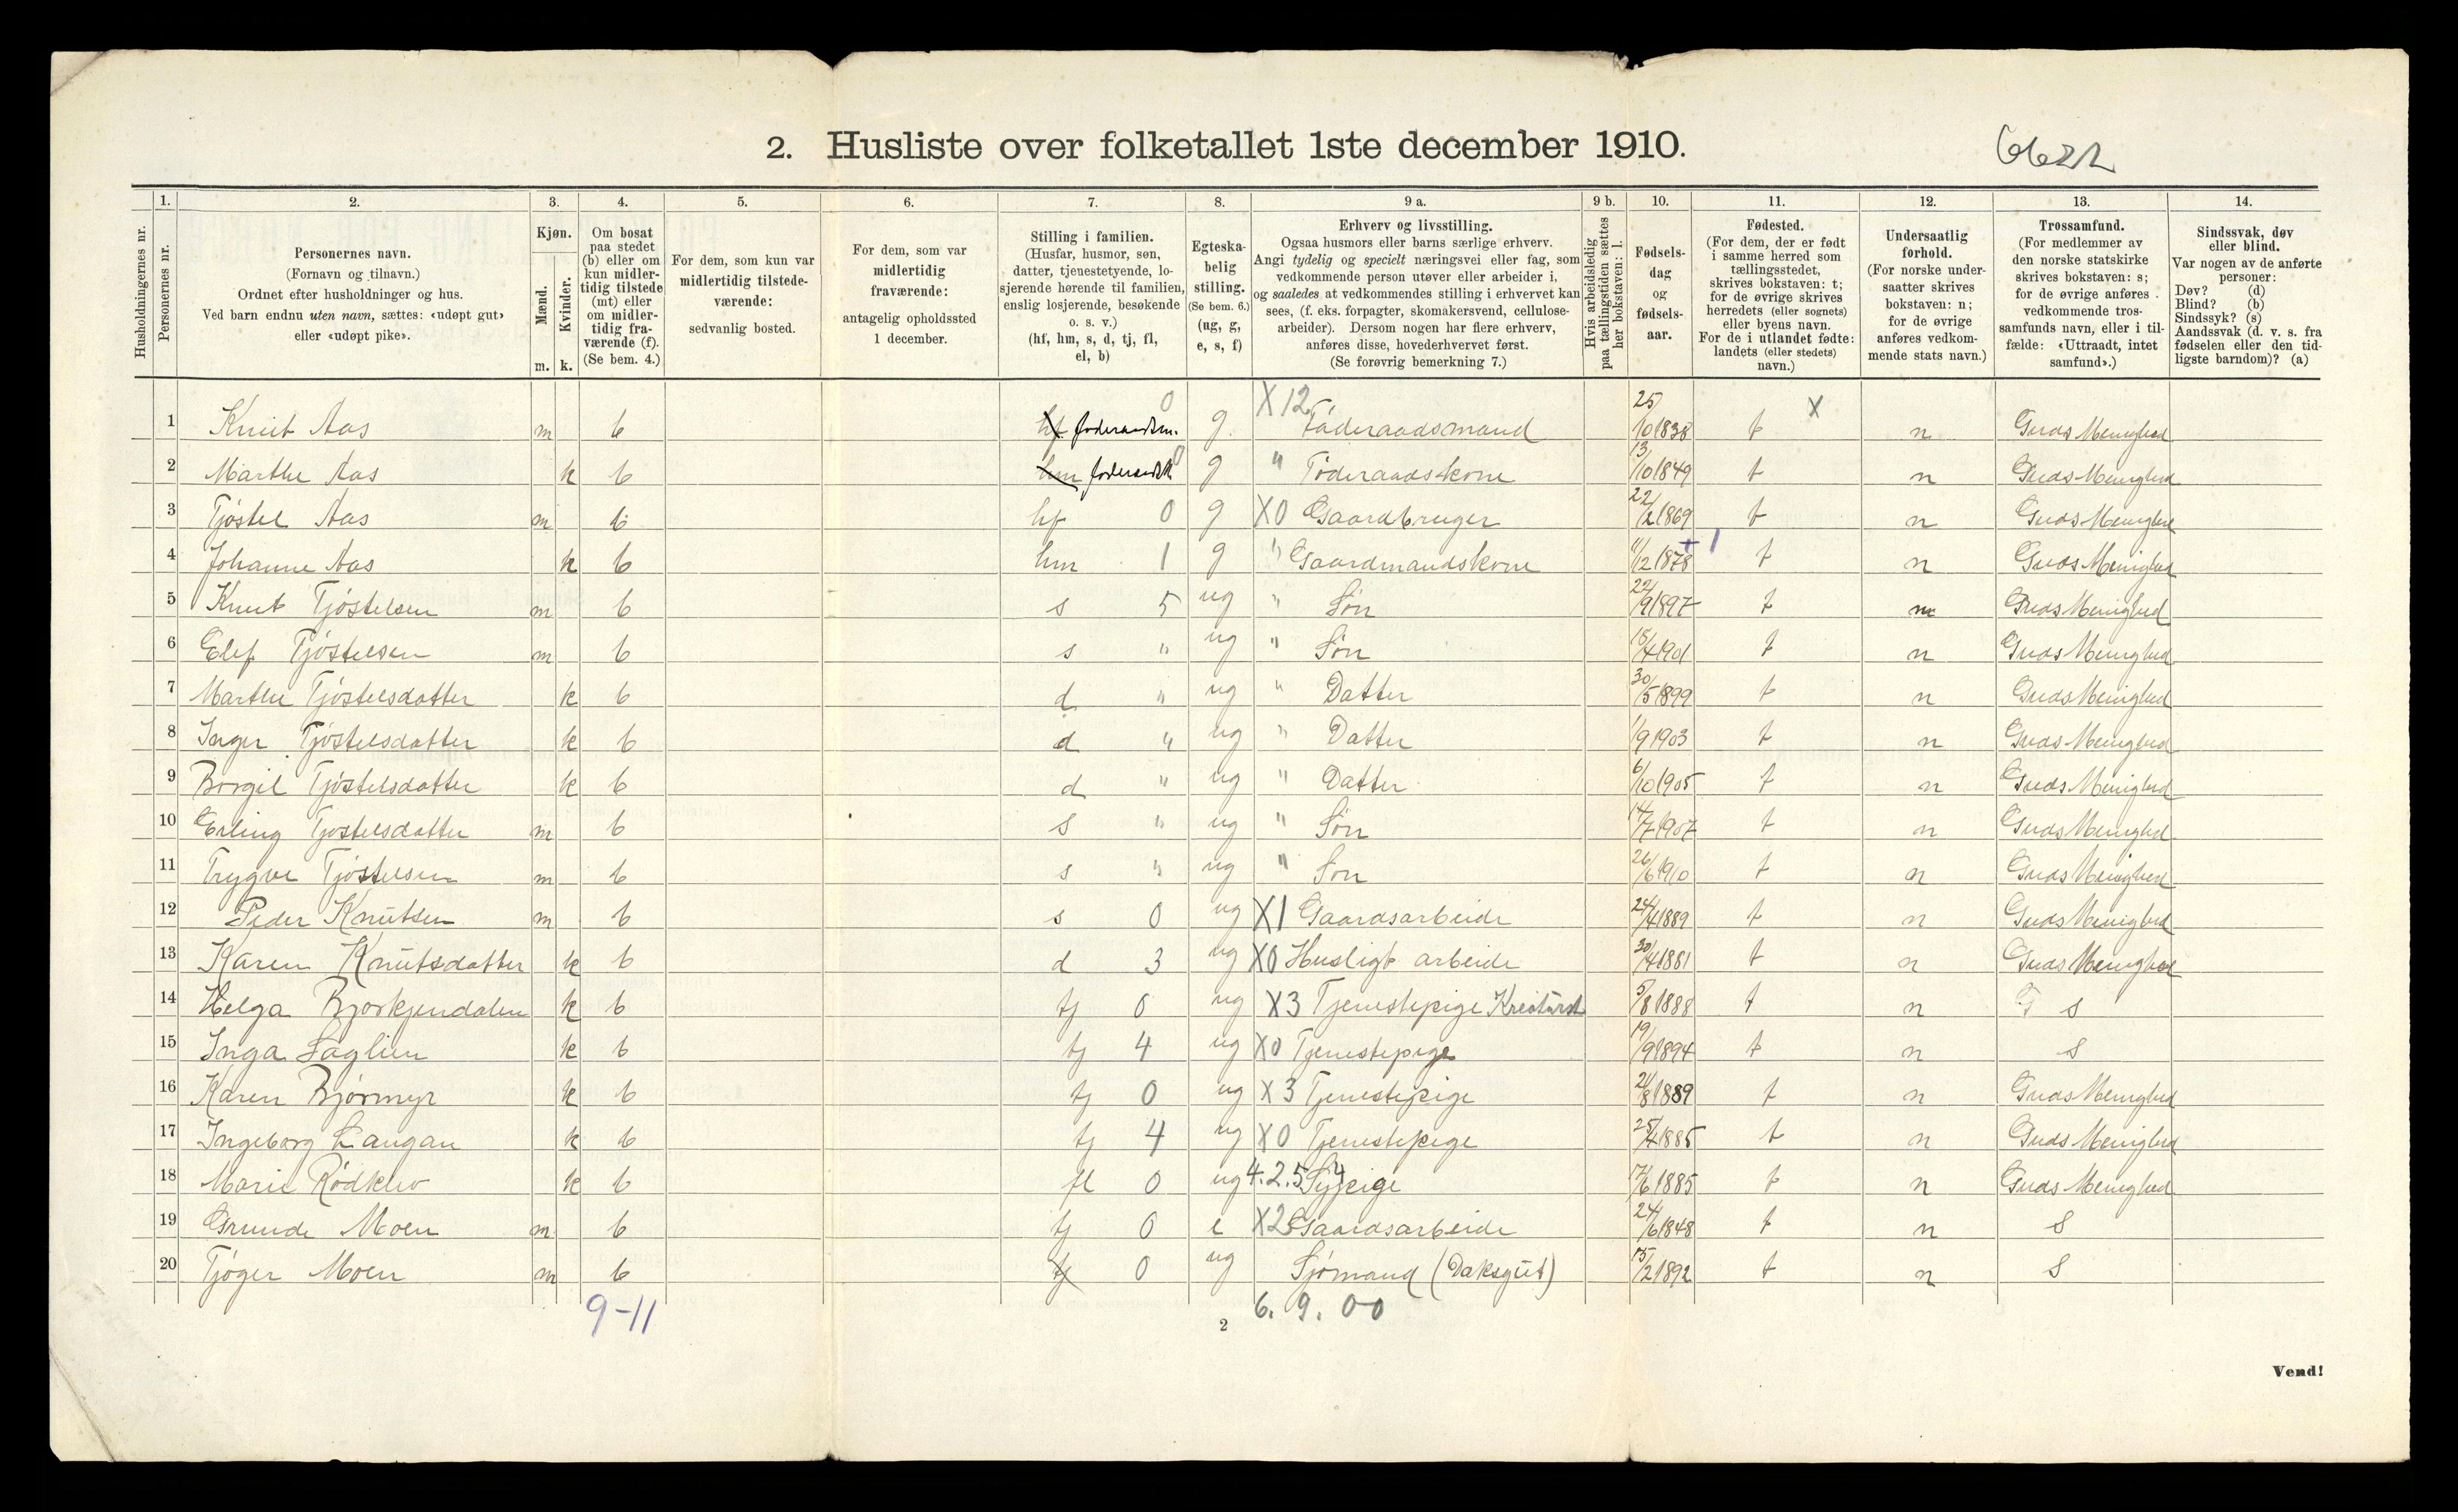 2. Husliste over folketallet 1ste december 1910.
6622
1. 2. 3. 4. 5. 6. 7. 8. 9 a. 9 b. 10. 11. 12. 13. 14.
Husholdningernes nr.
Personernes nr.
Personernes navn.
(Fornavn og tilnavn.)
Ordnet efter husholdninger og hus.
Ved barn endnu uten navn, sættes: «udøpt gut»
eller «udøpt pike».
Kjøn.
Mænd.
Kvinder.
m. k.
Om bosat
paa stedet
(b) eller om
kun midler-
tidig tilstede
(mt) eller
om midler-
tidig fra-
værende (f).
(Se bem. 4.)
For dem, som kun var
midlertidig tilstede-
værende:
sedvanlig bosted.
For dem, som var
midlertidig
fraværende:
antagelig opholdssted
1 december.
Stilling i familien.
(Husfar, husmor, søn,
datter, tjenestetyende, lo-
sjerende hørende til familien,
enslig losjerende, besøkende
o. s. v.)
(hf, hm, s, d, tj, fl,
el, b)
Egteska-
belig
stilling.
(Se bem. 6.)
(ug, g,
e, s, f)
Erhverv og livsstilling.
Ogsaa husmors eller barns særlige erhverv.
Angi tydelig og specielt næringsvei eller fag, som
vedkommende person utøver eller arbeider i,
og saaledes at vedkommendes stilling i erhvervet kan
sees, (f. eks. forpagter, skomakersvend, cellulose-
arbeider). Dersom nogen har flere erhverv,
anføres disse, hovederhvervet først.
(Se forøvrig bemerkning 7.)
Hvis arbeidsledig
paa tællingstiden sættes
her bokstaven: l.
Fødsels-
dag
og
fødsels-
aar.
Fødested.
(For dem, der er født
i samme herred som
tællingsstedet,
skrives bokstaven: t;
for de øvrige skrives
herredets (eller sognets)
eller byens navn.
For de i utlandet fødte:
landets (eller stedets)
navn.)
Undersaatlig
forhold.
(For norske under-
saatter skrives
bokstaven: n;
for de øvrige
anføres vedkom-
mende stats navn.)
Trossamfund.
(For medlemmer av
den norske statskirke
skrives bokstaven: s;
for de øvrige anføres
vedkommende tros-
samfunds navn, eller i til-
fælde: «Uttraadt, intet
samfund».)
Sindssvak, døv
eller blind.
Var nogen av de anførte
personer:
Døv? (d)
Blind? (b)
Sindssyk? (s)
Aandssvak (d. v. s. fra
fødselen eller den tid-
ligste barndom)? (a)
1 Knut Aas m b hf foderaadsm. 0 g. X 12 Føderaadsmand 25/10 1838 t X n Guds Menighed
2 Marthe Aas k b hm foderaadsk 0 g " Føderaadskone 13/10 1849 t n Guds Menighed
3 Tjøstel Aas m b hf 0 g X0 Gaardbruger 22/2 1869 t n Guds Menighed
4 Johanne Aas k b hm 1 g " Gaardmandskone 11/12 1878 + 1 t n Guds Menighed
5 Knut Tjøstelsen m b s 5 ug " Søn 22/9 1897 t n Guds Menighed
6 Elef Tjøstelsen m b s " ug " Søn 15/4 1901 t n Guds Menighed
7 Marthe Tjøstelsdatter k b d " ug " Datter 30/5 1899 t n Guds Menighed
8 Inger Tjøstelsdatter k b d " ug " Datter 1/9 1903 t n Guds Menighed
9 Borgil Tjøstelsdatter k b d " ug " Datter 6/10 1905 t n Guds Menighed
10 Erling Tjøstelsdatter m b s " ug " Søn 14/7 1907 t n Guds Menighed
11 Trygve Tjøstelsen m b s " ug " Søn 26/6 1910 t n Guds Menighed
12 Peder Knutsen m b s 0 ug X1 Gaardsarbeide 24/4 1889 t n Guds Menighed
13 Karen Knutsdatter k b d 3 ug X0 Husligt arbeide 30/4 1881 t n Guds Menighed
14 Helga Bjorkjendalen k b tj 0 ug X3 Tjenestepige Kreaturst 5/8 1888 t n s
15 Inga Saglien k b tj 4 ug X0 Tjenestepige 19/9 1894 t n s
16 Karen Bjørmyr k b tj 0 ug X3 Tjenestepige 21/8 1889 t n Guds Menighed
17 Ingeborg Langan k b tj 4 ug X0 Tjenestepige 25/4 1885 t n Guds Menighed
18 Marie Rødklev k b fl 0 ug 4.2.54 Sypige 17/6 1885 t n Guds Menighed
19 Grunde Moen m b tj 0 e X2 Gaardsarbeide 24/6 1848 t n s
20 Tjøger Moen m b tj 0 ug Sjømand (Daksgut) 15/2 1892 t n s
9-11
6. 9. 00
2
Vend!